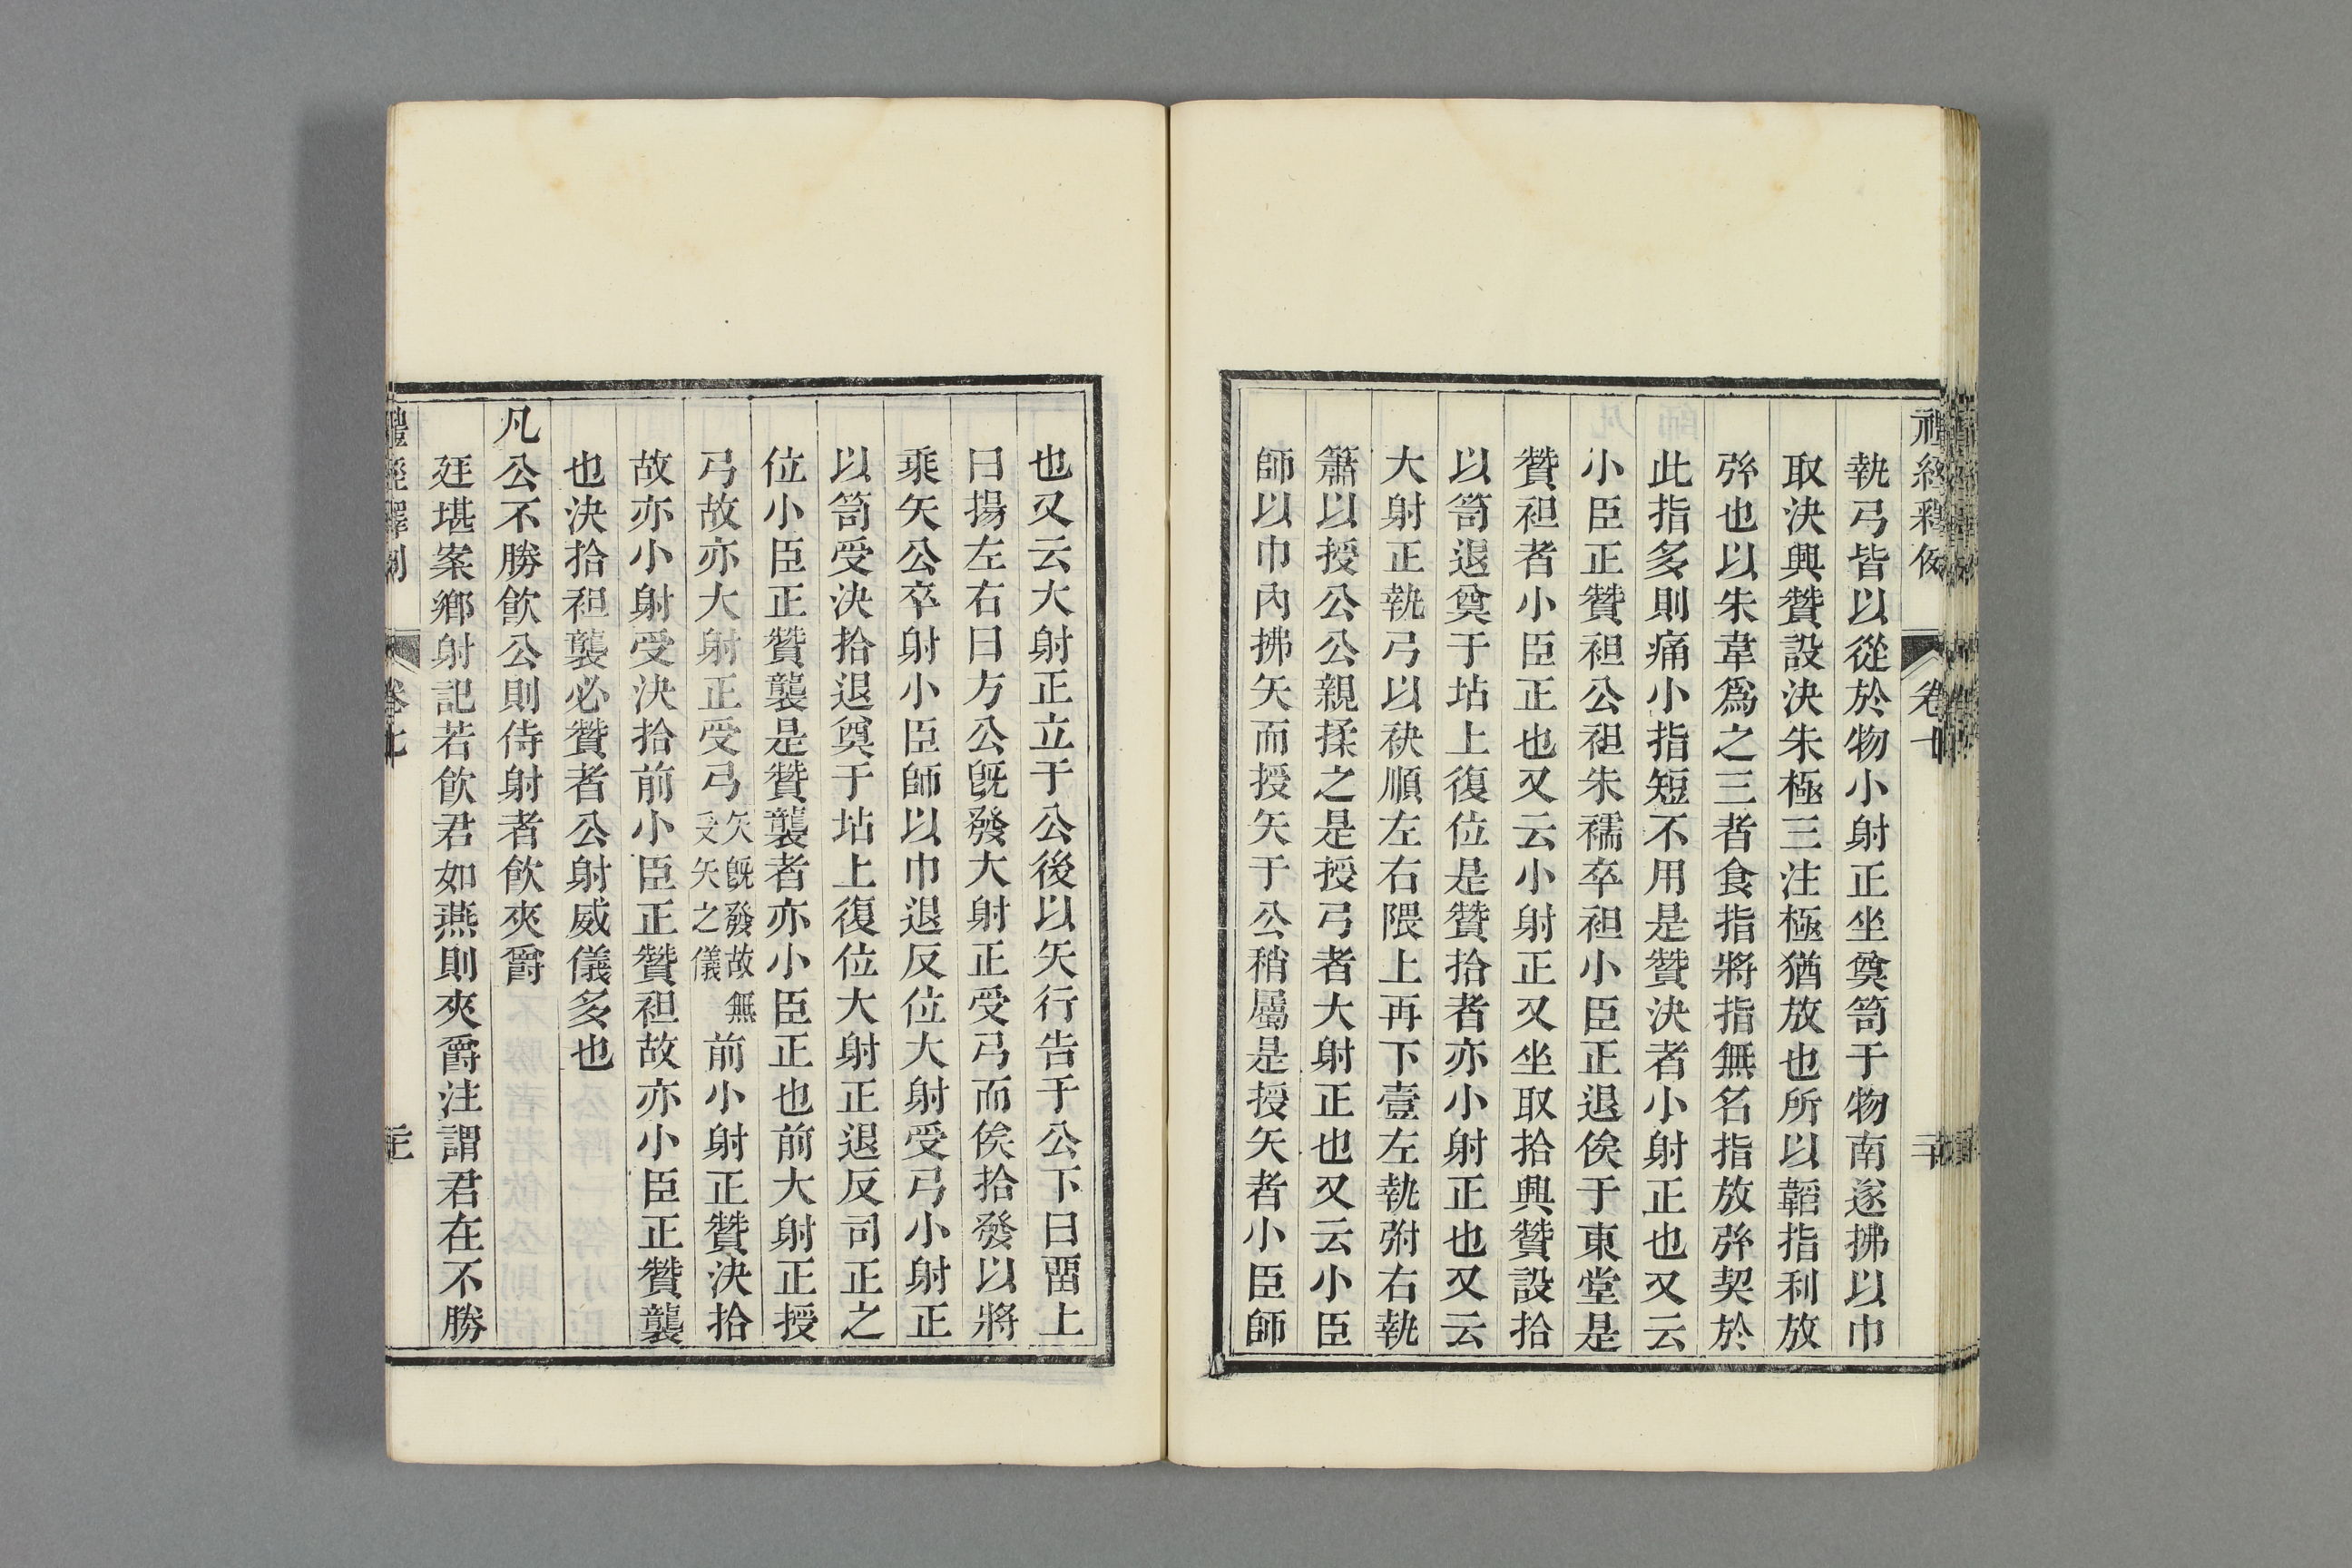 執弓皆以從於物小射正坐奠笥于物南遂拂以巾
取決興贊設決朱極三注極猶放也所以韜指利放
弦也以朱韋爲之三者食指將指無名指放弦契於
此指多則痛小指短不用是贊決者小射正也又云
小臣正贊袒公袒朱襦卒袒小臣正退俟于東堂是
贊袒者小臣正也又云小射正又坐取拾興贊設拾
以笥退奠于坫上復位是贊拾者亦小射正也又云
大射正執弓以袂順左右隈上再下壹左執弣右執
簫以授公公親揉之是授弓者大射正也又云小臣
師以巾內拂矢而授矢于公稍屬是授矢者小臣師
也又云大射正立于公後以矢行告于公下曰畱上
曰揚左右曰方公既發大射正受弓而俟拾發以將
乘矢公卒射小臣師以巾退反位大射受弓小射正
以笥受決拾退奠于坫上復位大射正退反司正之
位小臣正贊襲是贊襲者亦小臣正也前大射正授
弓故亦大射正受弓矢既發故無受矢之儀前小射正贊決拾
故亦小射受決拾前小臣正贊袒故亦小臣正贊襲
也決拾袒襲必贊者公射威儀多也
凡公不勝飮公則侍射者飮夾爵
廷堪案鄉射記若飮君如燕則夾爵注謂君在不勝